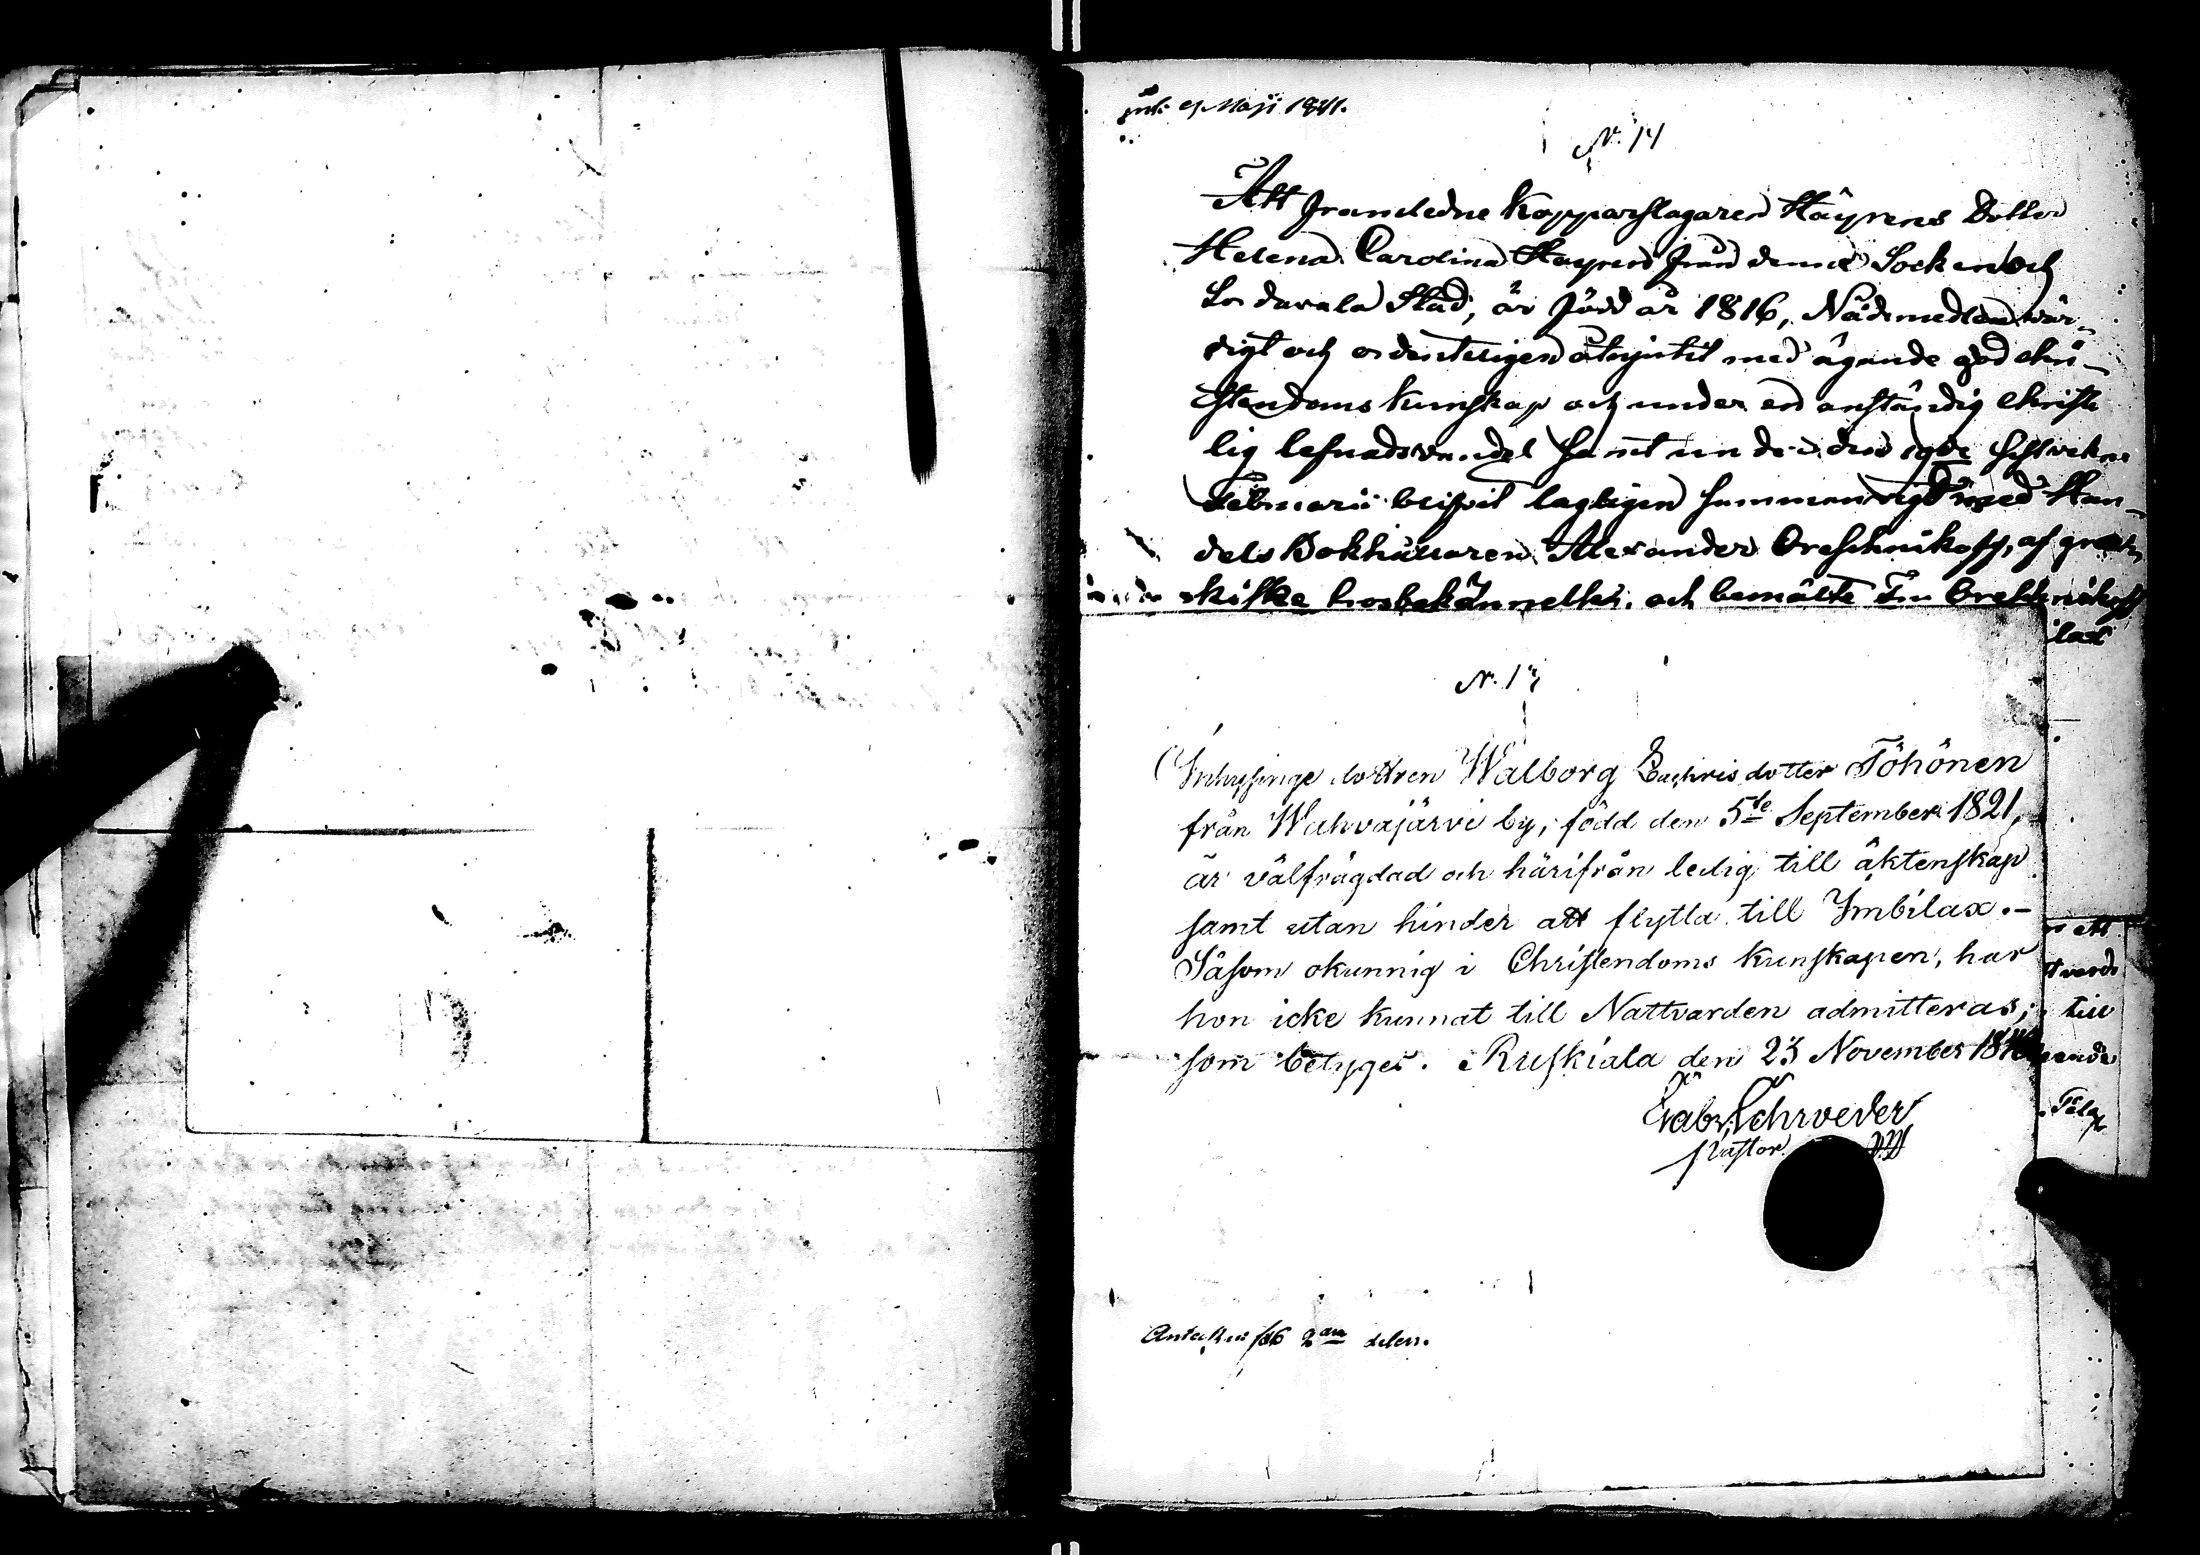 Maji 1841.
N. 14
Att framledne Kopparslagaren Häyrens Dotter
Helena Carolina Häyren från denna Socken och
Sordavala Stad, är född år 1816, Nådemedlen wär-
digt och ordenteligen åtnjutit med ägande god chri-
stendoms kunskap och under en anständig christe
lig lefnadsvandel samt under den sistvekne
Februarii blifvit lagligen sammanvigd med Han-
dels Bokhållaren Alexander Oreschnikoff, af grek
iska trosbekännelse, och bemälte Fru Oreschnikoff
N. 17
Inhysinge dottren Walborg Zachrisdotter Töhönen
från Wahvajärvi by, född den 5te September 1821,
är välfrägdad och härifrån ledig till äktenskap
samt utan hinder att flytta till Ymbilax.-
Såsom okunnig i Christendoms kunskapen, har
hon icke kunnat till Nattvarden admitteras;
som betyges. Ruskiala den 23 November 18
Gabr. Schroeder
Pastor.
ett
till
ande
Antekn 2an delen.